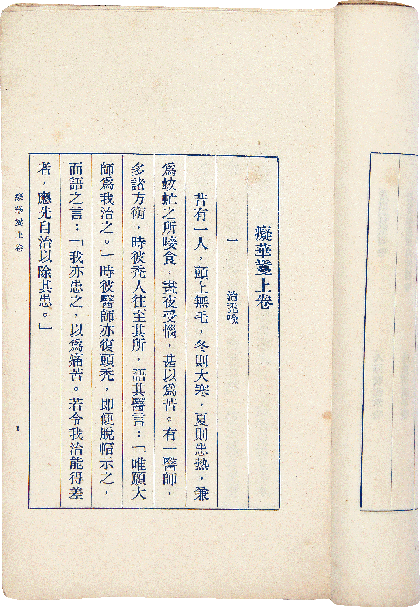 癡華鬘上卷
一　治禿喩
昔有一人，頭上無毛，冬則大寒，夏則患熱，兼
爲蚊虻之所唼食，晝夜受惱，甚以爲苦。有一醫師，
多諸方術，時彼禿人往至其所，語其醫言：「唯願大
師爲我治之。」時彼醫師亦復頭禿，即便脫帽示之，
而語之言：「我亦患之，以爲痛苦。若令我治能得差
者，應先自治以除其患。」
癡華鬘上卷
1